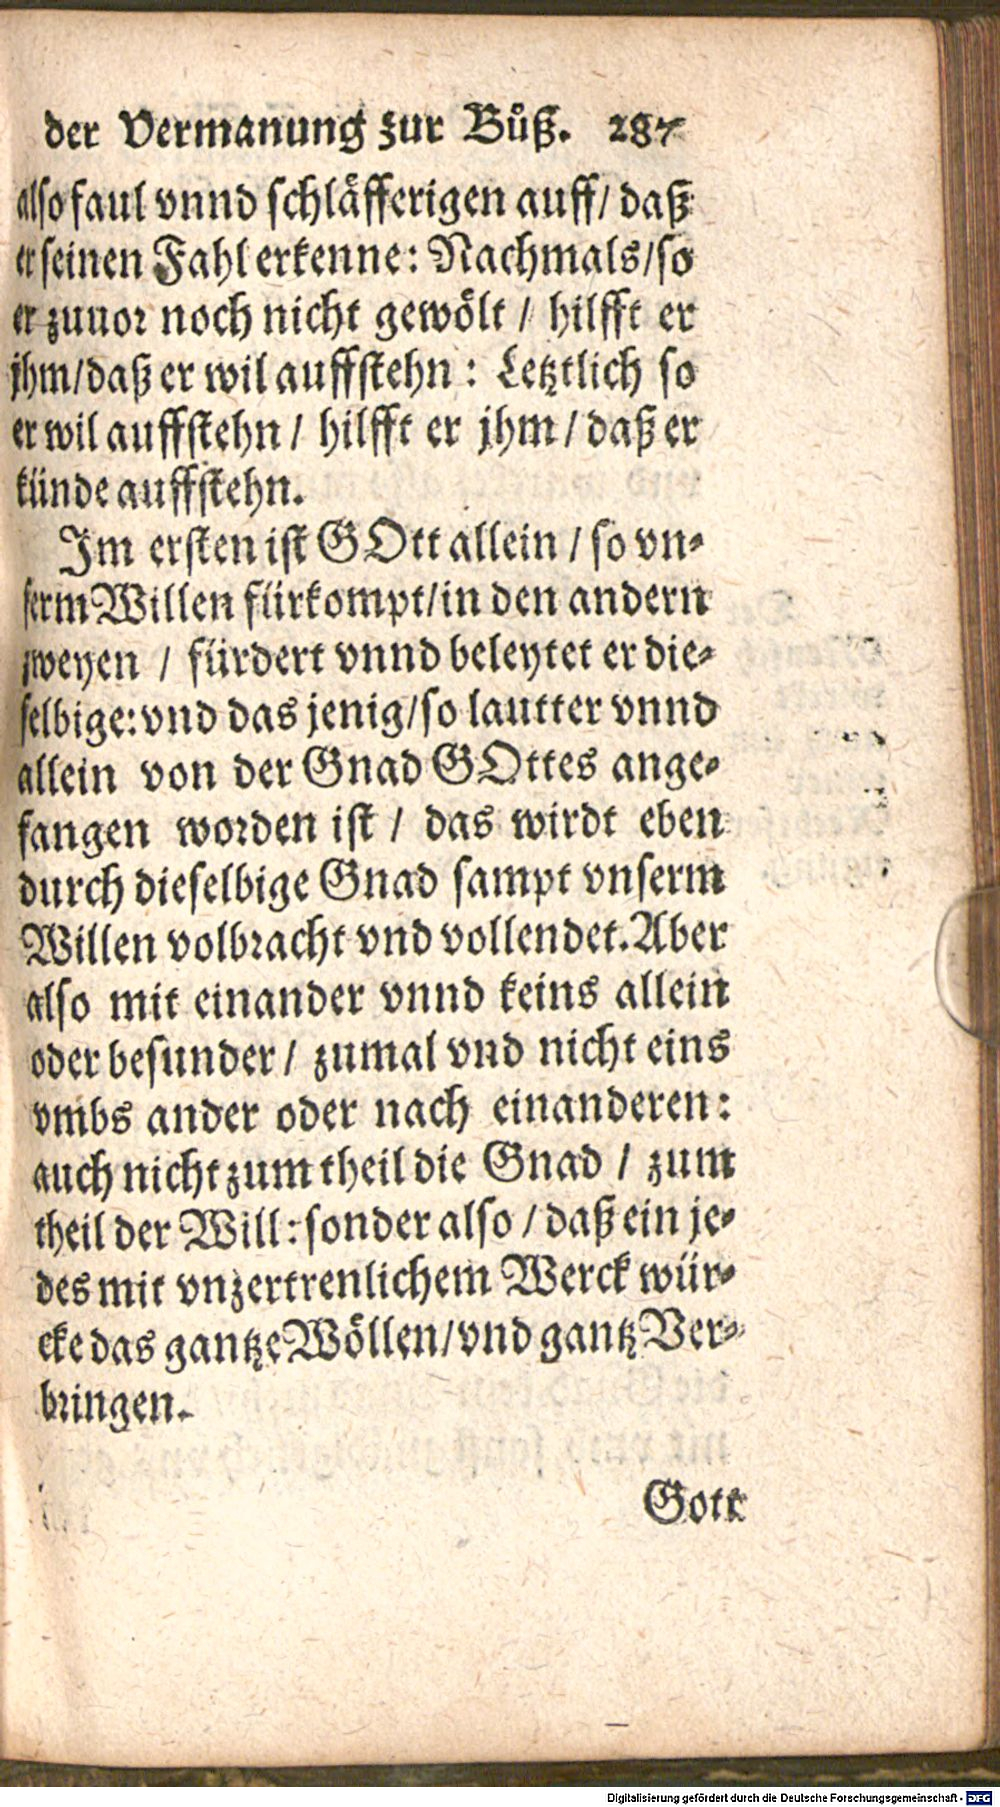 der Vermanung zur Büß. 287
also faul vnnd schläfferigen auff/ daß
er seinen Fahl erkenne: Nachmals/so
er zuuor noch nicht gewölt / hilfft er
jhm/daß er wil auffstehn : Letztlich so
er wil auffstehn / hilfft er jhm / daß er
künde auffstehn.
Im ersten ist GOtt allein / so vn-
serm Willen fürkompt/in den andern
zweyen / fürdert vnnd beleytet er die-
selbige: vnd das jenig/so lautter vnnd
allein von der Gnad GOttes ange-
fangen worden ist / das wirdt eben
durch dieselbige Gnad sampt vnserm
Willen volbracht vnd vollendet. Aber
also mit einander vnnd keins allein
oder besunder / zumal vnd nicht eins
vmbs ander oder nach einanderen:
auch nicht zum theil die Gnad / zum
theil der Will: sonder also / daß ein je-
des mit vnzertrenlichem Werck wür-
cke das gantze Wöllen/vnd gantz Ver-
bringen.
Gott
Digitalisierung gefördert durch die Deutsche Forschungsgemeinschaft - DFG